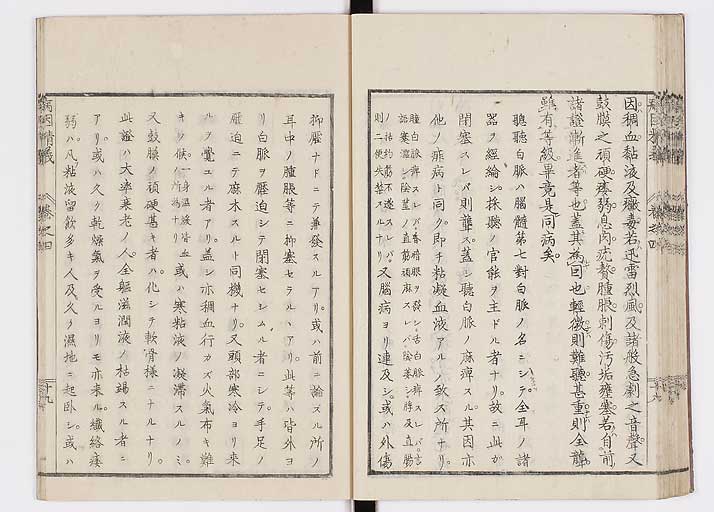 因稠血黏液及黴毒若迅雷烈風及諸般急劇之音聲又
鼓膜之頑硬痿弱息肉疣贅腫脹刺傷汚垢壅塞若自前
諸證漸進者等也蓋其為因也輕微則難聽甚重則全聾
雖有等級畢竟是同病矣
聰聽白脈ハ腦髓第七對白脈ノ名ニシテ全耳ノ諸
器ヲ經綸シ採聽ノ官能ヲ主ドル者ナリ故ニ此ガ
閉塞スレバ則聾ス蓋シ聽白脈ノ麻痺スル其因亦
他ノ痱病ト同ク即チ粘凝血液アルノ致ス所ナリ
瞳白脈痺スレバ春睛眼ヲ發シ舌白脈痺スレバ言
語蹇澀シ陰莖ノ直筋頑麻スレバ陰萎シ脖及直腸
ノ括約筋不遂スレバ又腦病ヨリ連及シ或ハ外傷
則二便失禁スルナリ
抑壓ナドニテ兼發スルアリ或ハ前ニ論ズル所ノ
耳中ノ腫脹等ニ抑塞セラルヽアリ此等ハ皆外ヨ
リ白脈ヲ壓迫シテ閉塞セシムル者ニシテ手足ノ
壓迫ニテ麻木スルト同機ナリ又頭部寒冷ヨリ來
ルヲ覺ユル者アリ蓋シ亦稠血行カズ火氣布キ難
キノ候一身温緩皆血ノ所為ナリ或ハ寒粘液ノ凝滯スルノミ
又鼓膜ノ頑硬甚キ者ハ化シテ軟骨樣ニナルナリ
此證ハ大率衰老ノ人全軀滋潤液ノ枯竭スル者ニ
アリ或ハ久ク乾燥氣ヲ受ルヨリモ亦來ル纖絡痿
弱ハ凡粘液留飲多キ人及久ク濕地ニ起臥シ或ハ
病因精義
卷之四
十九